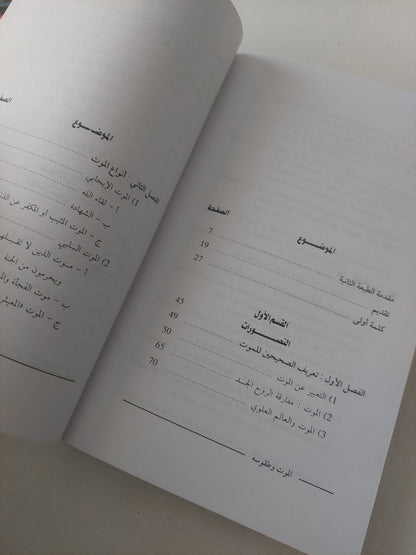 الموضوع
الصفحة
مقدمة الطبعة الثانية 7
تقديم 19
كلمة أولى 27
القسم الأول 45
التصورات
الفصل الأول : تعريف الصحيحين للموت 49
1) التعبير عن الموت 50
2) الموت : مفارقة الروح الجسد 65
3) الموت والعالم العلوي 70
الموت وطقوسه
الموضوع
الفصل الثاني : أنواع الموت
1) الموت الإيجابي
أ - لقاء الله
ب - الشهادة
ج - الموت المثيب أو المكفر عن
2) الموت السلبي
أ - موت الذين لا
ويحرمون من الجنة
ب - موت الفجأة
ج - الموت